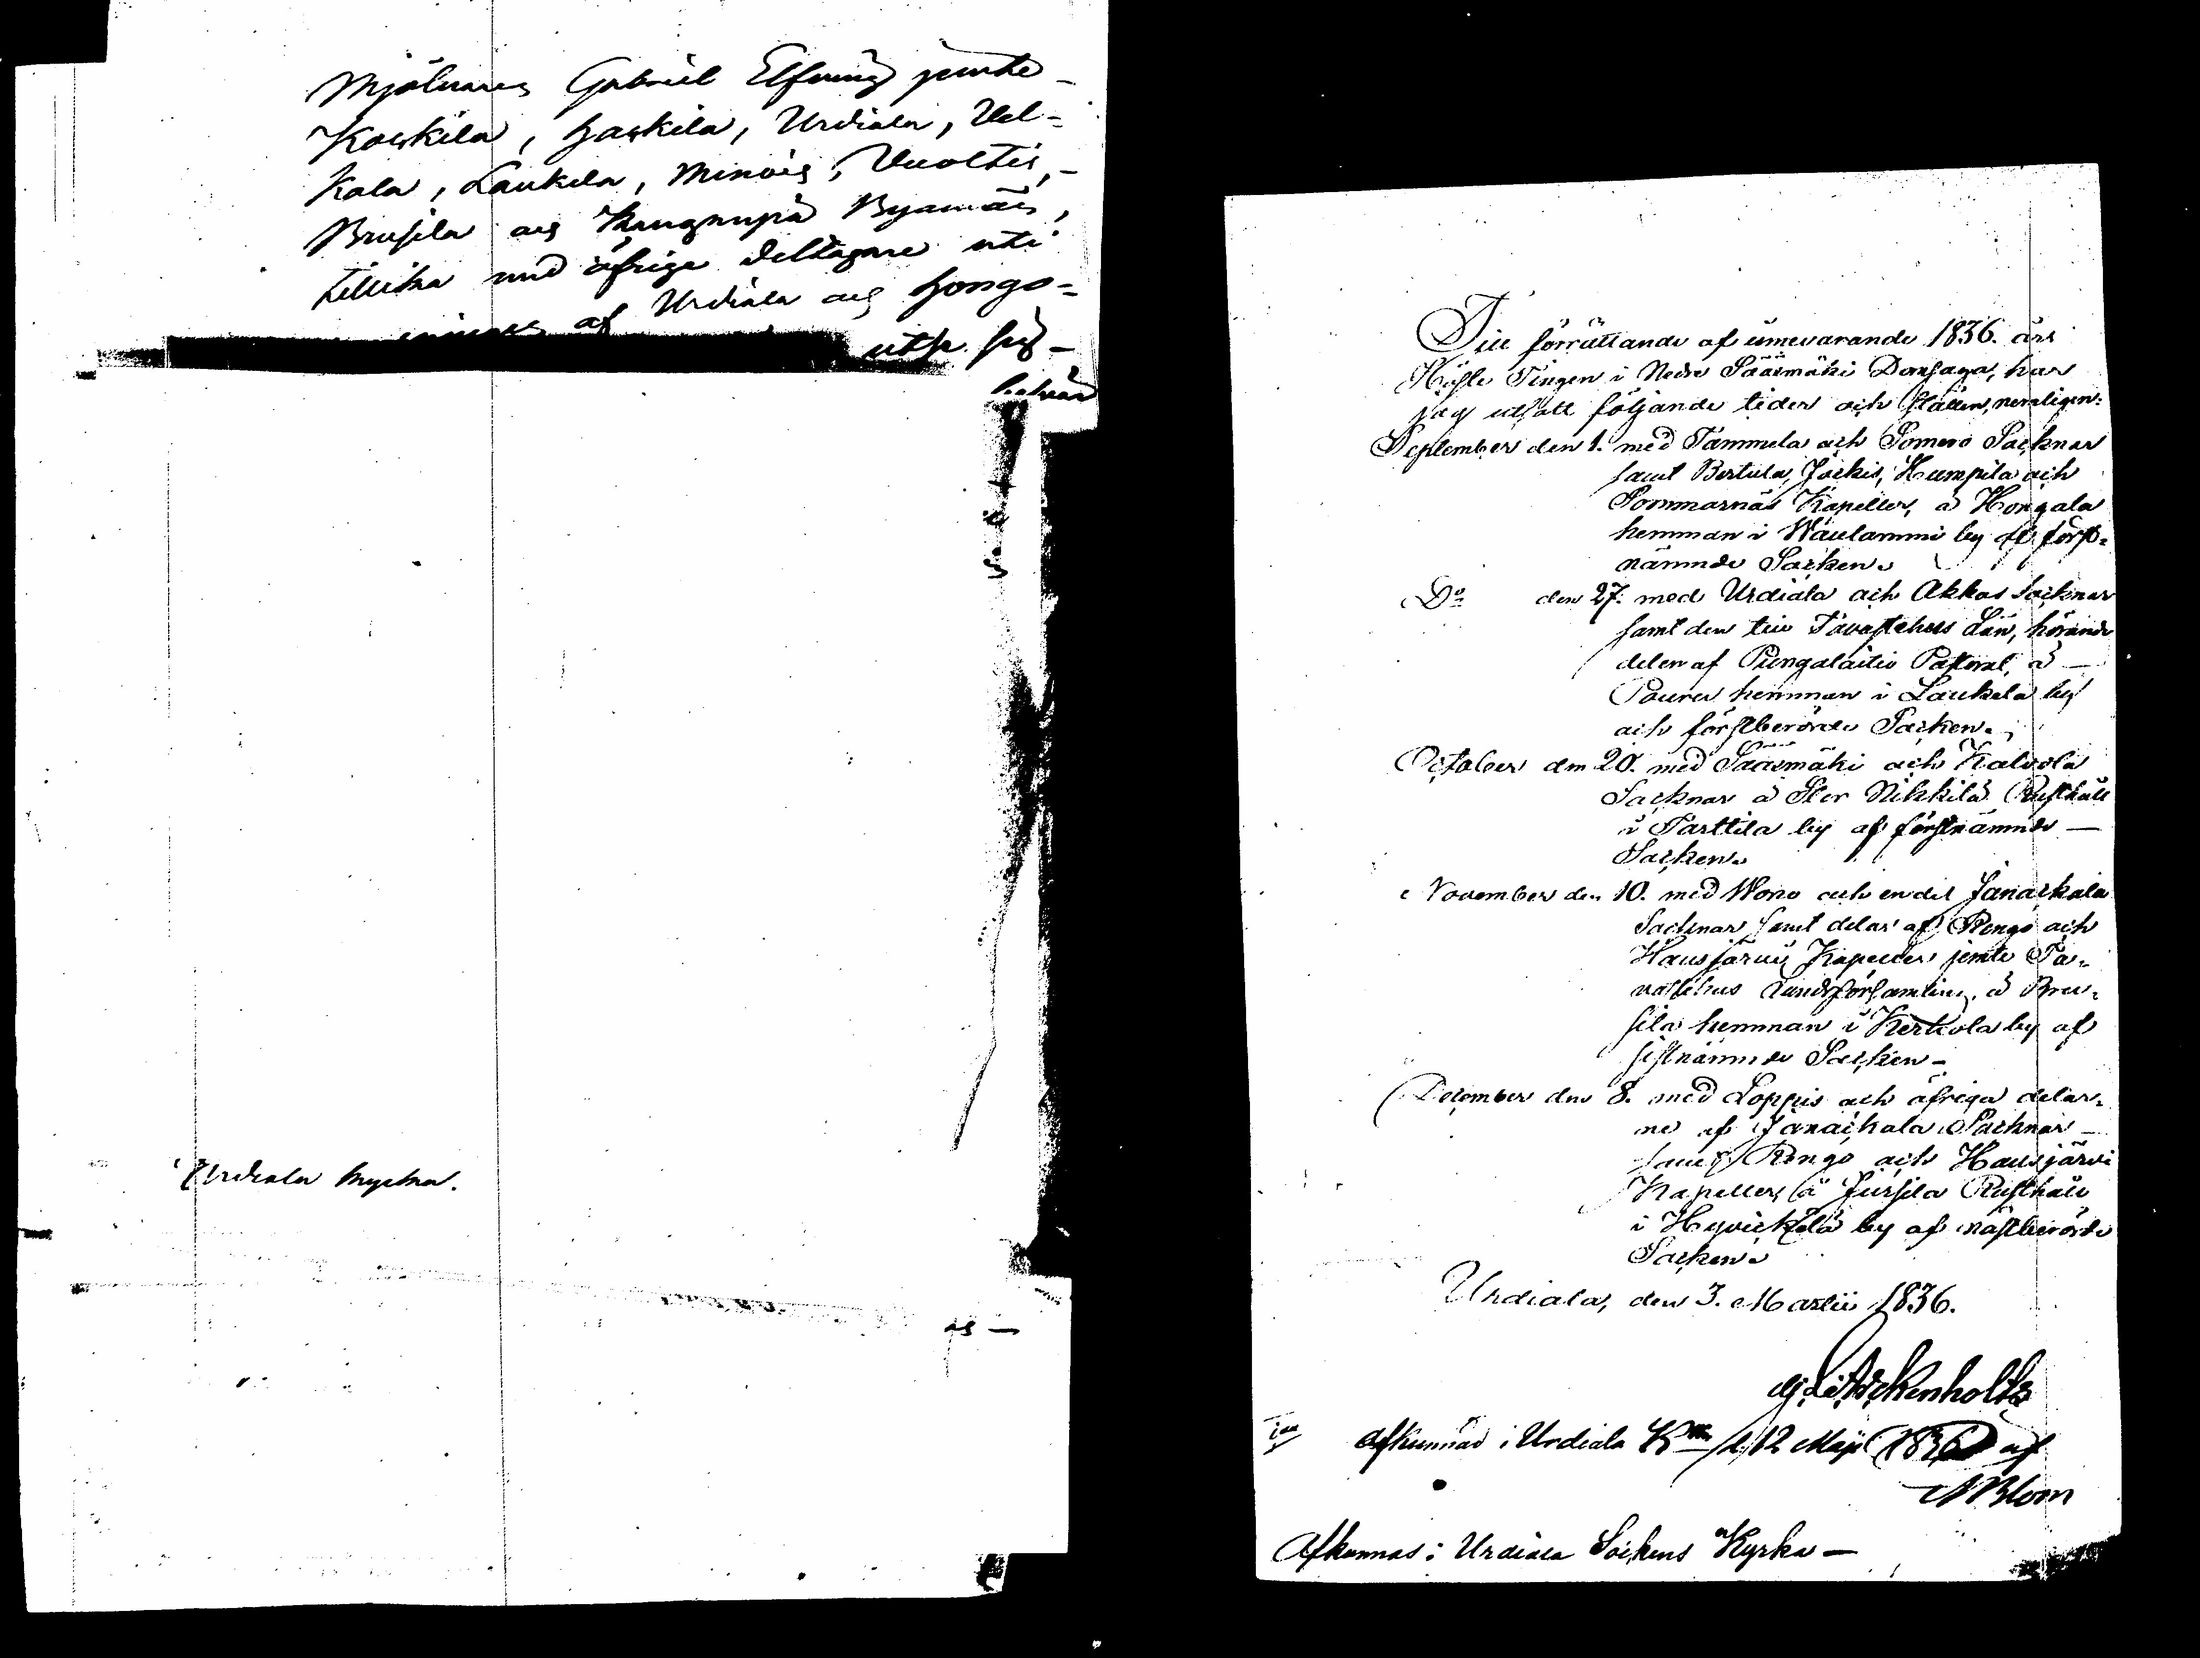 Mjölnaren Gabriel Elfving jemte
Koskila, Haskila, Urdiala, Vel-
kala, Laukela, Minois, Vuoltis,
Brusila och Kangnupä Byamän,
tillika med öfrige deltagare uti
af Urdiala och Hongo-
Urdiala kyrka.
och —
Till förrättande af innevarande 1836. års
Höste Tingen i Nedre Sääsmäki Domsaga, har
jag utsatt följande tider och ställen, nemligen:
September den 1. med Tammela och Somero Socknar
samt Bertula, Jockis, Humpila och
Sommarnäs Kapeller, å Hongala
hemman i Waulammi by af först-
nämnde Socken.
Do den 27. med Urdiala och Akkas Socknar
samt den till Tavastehus Län, hörande
delen af Pungalaitio Pastorat, å —
Pouru hemman i Laukela by
och förstberörde Socken.
October den 20. med Sääsmäki och Kalvola
Socknar å Stor Nikkilä Rusthåll
i Parttila by af förstnämnde —
Socken.
November den 10. med Wono och en del Janackala
Socknar samt delar af Rengo och
Hausjärvi Kapeller jemte Ta-
vastehus Landsförsamling, å Bru-
sila hemman i Kertiola by af
sistnämnde Socken —
December den 8. med Loppis och öfriga delar-
ne af Janackala Socknar —
samt Rengo och Hausjärvi
Kapeller, å Jursila Rusthåll
i Hyvickälä by af nästberörde
Socken.
Urdiala, den 3. Martii 1836.
Afkunnad i Urdiala d. 12 Maji 1836 af
Blom
Afkunnas i Urdiala Sockens Kyrka —